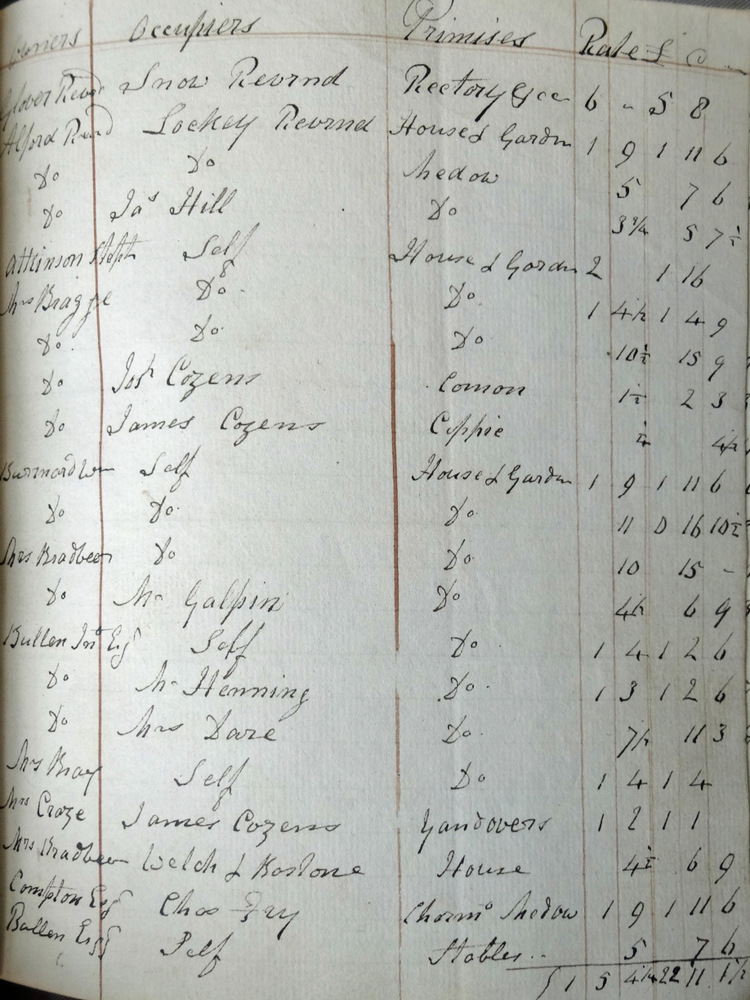 Owners Occupiers Primises Rate £ s
Glover Revd Snow Revrnd Rectory &cc 6 - 5 8
Alford Revd Lockey Revrnd House & Garden 1 9 1 11 6
Do Do Medow 5 7 6
Do Jas Hill Do 3 3/4 5 7 1/2
Atkinson Self House & Garden 2 1 16
Mrs Bragge Do Do 1 4 1/2 1 4 9
Do Do Do 10 1/2 15 9
Do Josh Cozens Comon 1 1/2 2 3
Do James Cozens Coppie 1/4 4 1/2
Self House & Garden 1 9 1 11 6
Do Do Do 11 0 16 10 1/2
Mrs Bradbeer Do Do 10 15 -
Do Mr Galpin Do 4 1/2 6 9
Bullen Jno Esq Self Do 1 4 1 2 6
Do Mr Henning Do 1 3 1 2 6
Do Mrs Dare Do 7 1/2 11 3
Mrs Bray Self Do 1 4 1 4
Mrs Croze James Cozens Yandovers 1 2 1 1
Mrs Bradbeer Welch & Bastone House 4 1/2 6 9
Compton Esq Chas Fry Medow 1 9 1 11 6
Bullen Esq Self Stables 5 7 6
51 5 4 1/4 22 11 1 1/2